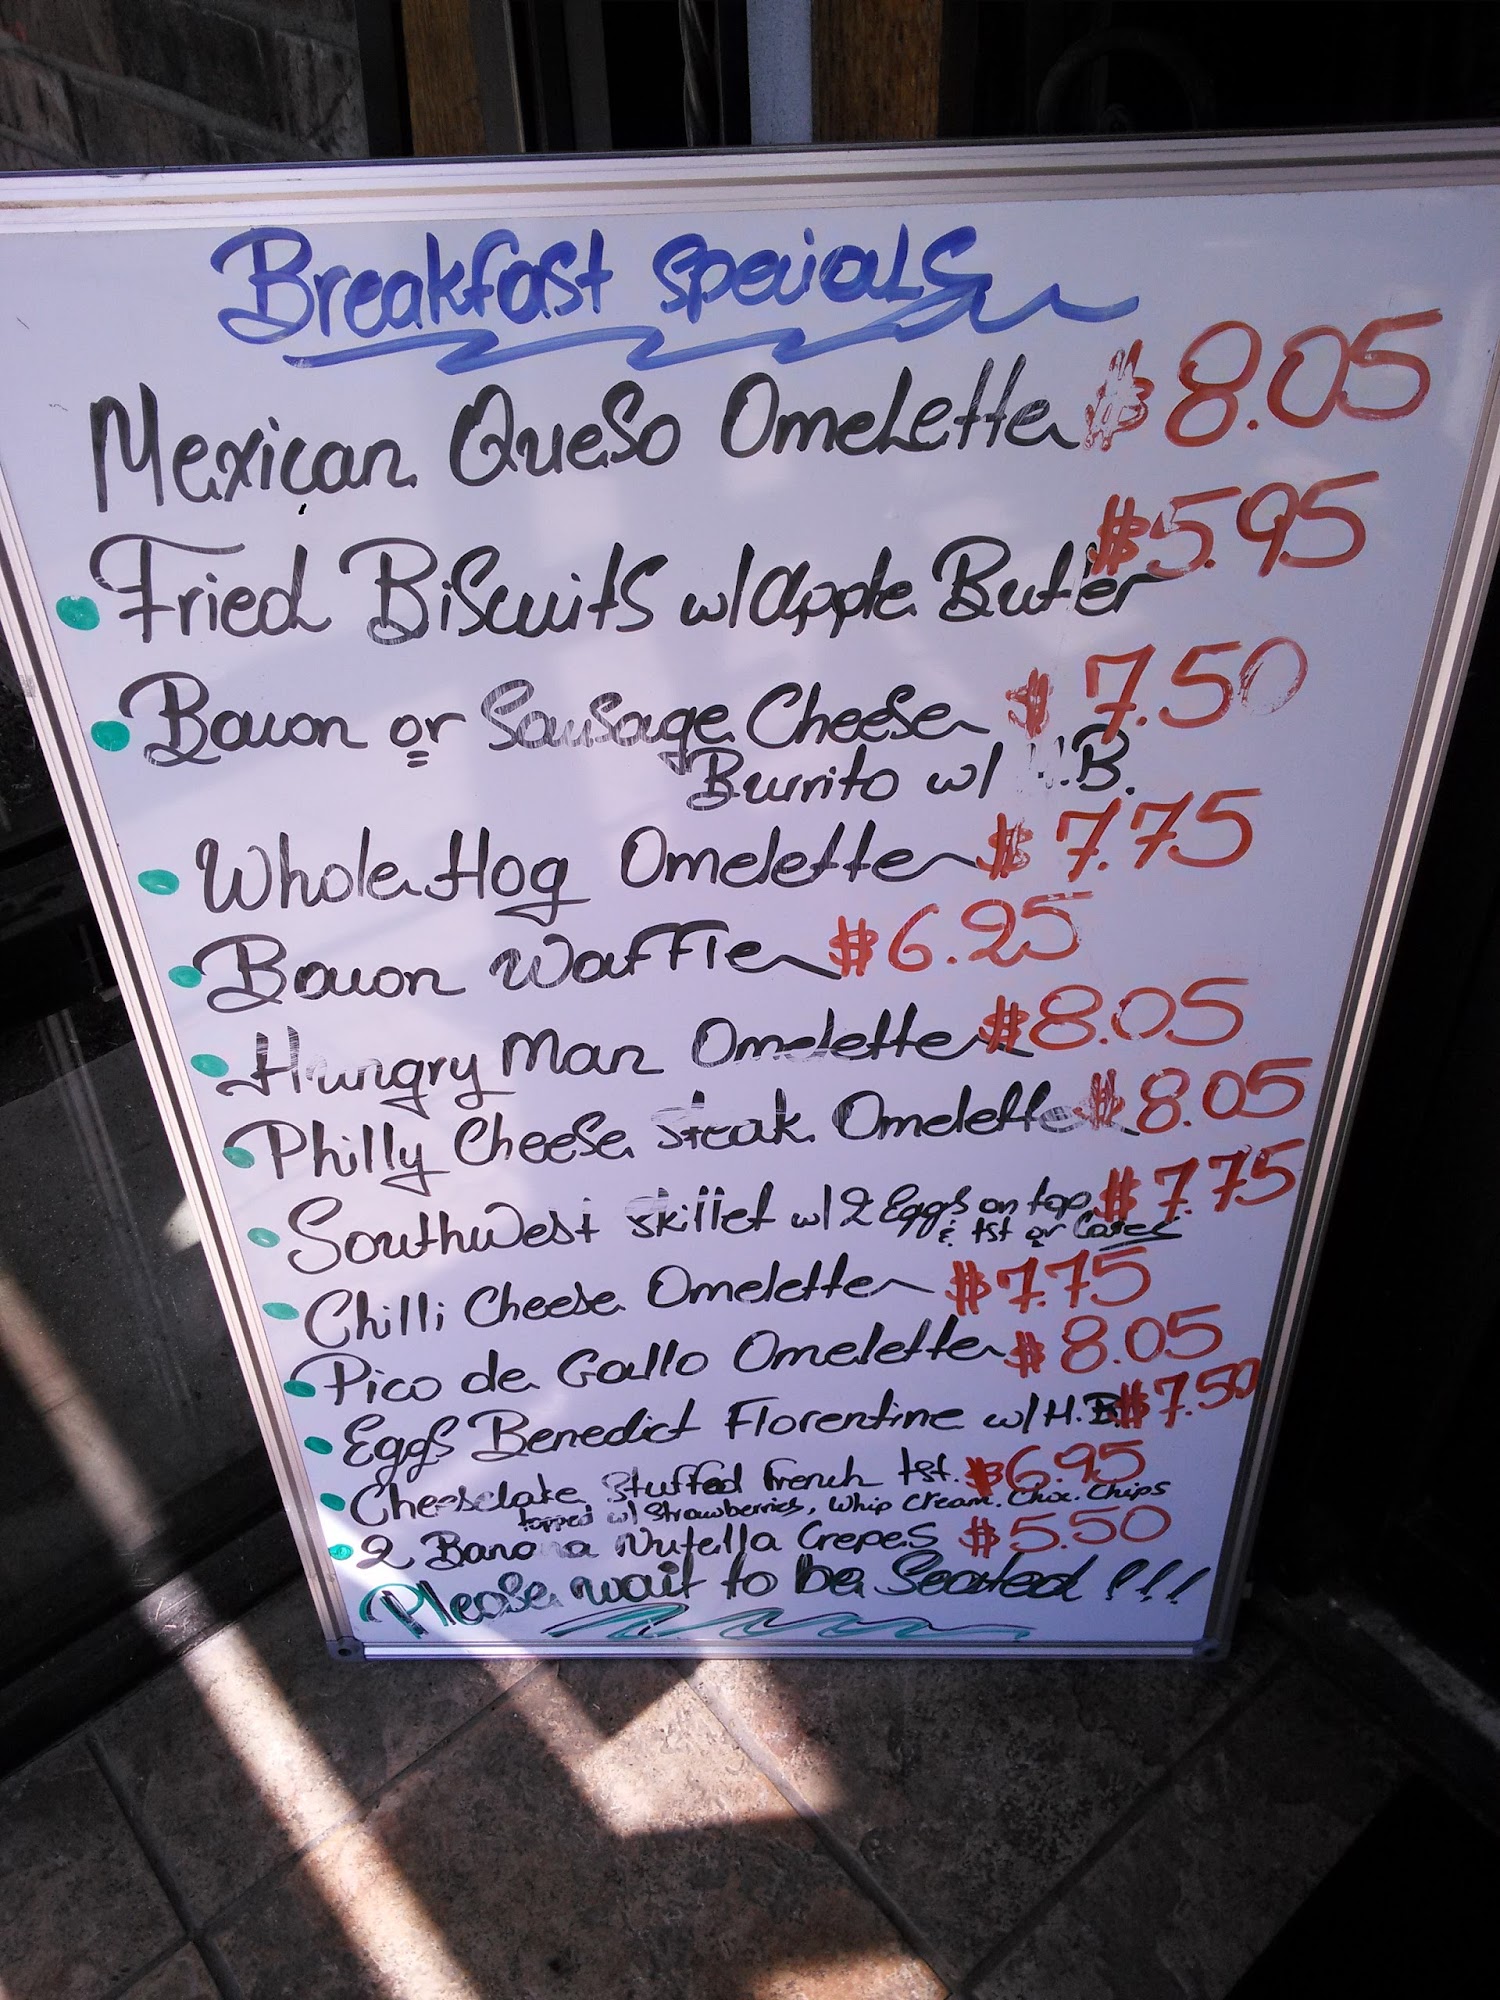 Breakfast specials
Mexican Queso Omelette $8.05
Fried Biscuits w/apple Butter $5.95
Bacon or Sausage Cheese $7.50
Burrito w/ H.B.
Whole Hog Omelette $7.75
Bacon Waffle $6.25
Hungry Man Omelette $8.05
Philly Cheese Steak Omelette $8.05
Southwest Skillet w/2 Eggs on top $7.75
& tst or Cakes
Chilli Cheese Omelette $7.75
Pico de Gallo Omelette $8.05
Eggs Benedict Florentine w/H.B $7.50
Cheesclake Stuffed French tst. $6.95
topped w/ Strawberries, Whip Cream. Choc. Chips
2 Banana Nutella Crepes $5.50
Please wait to be Seated!!!